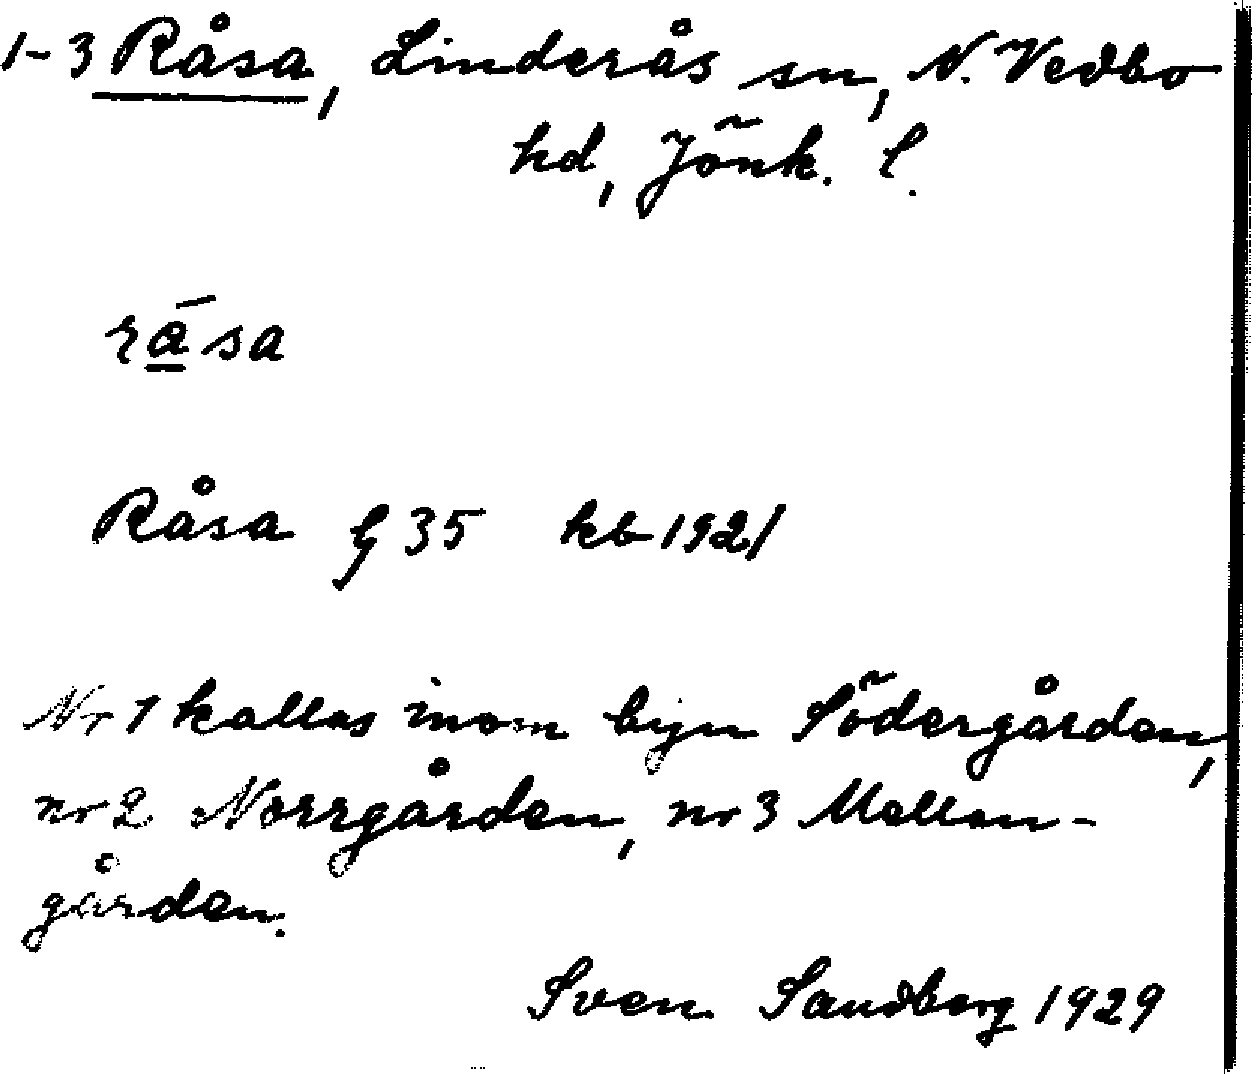 1-3 Råsa, Linderås sn, N. Vedbo
hd, Jönk. l.
råsa
Råsa g 35 kb 1921
Nr 1 kallas inom byn Södergården,
nr 2 Norrgården, nr 3 Mellan-
gården.
Sven Sandberg 1929